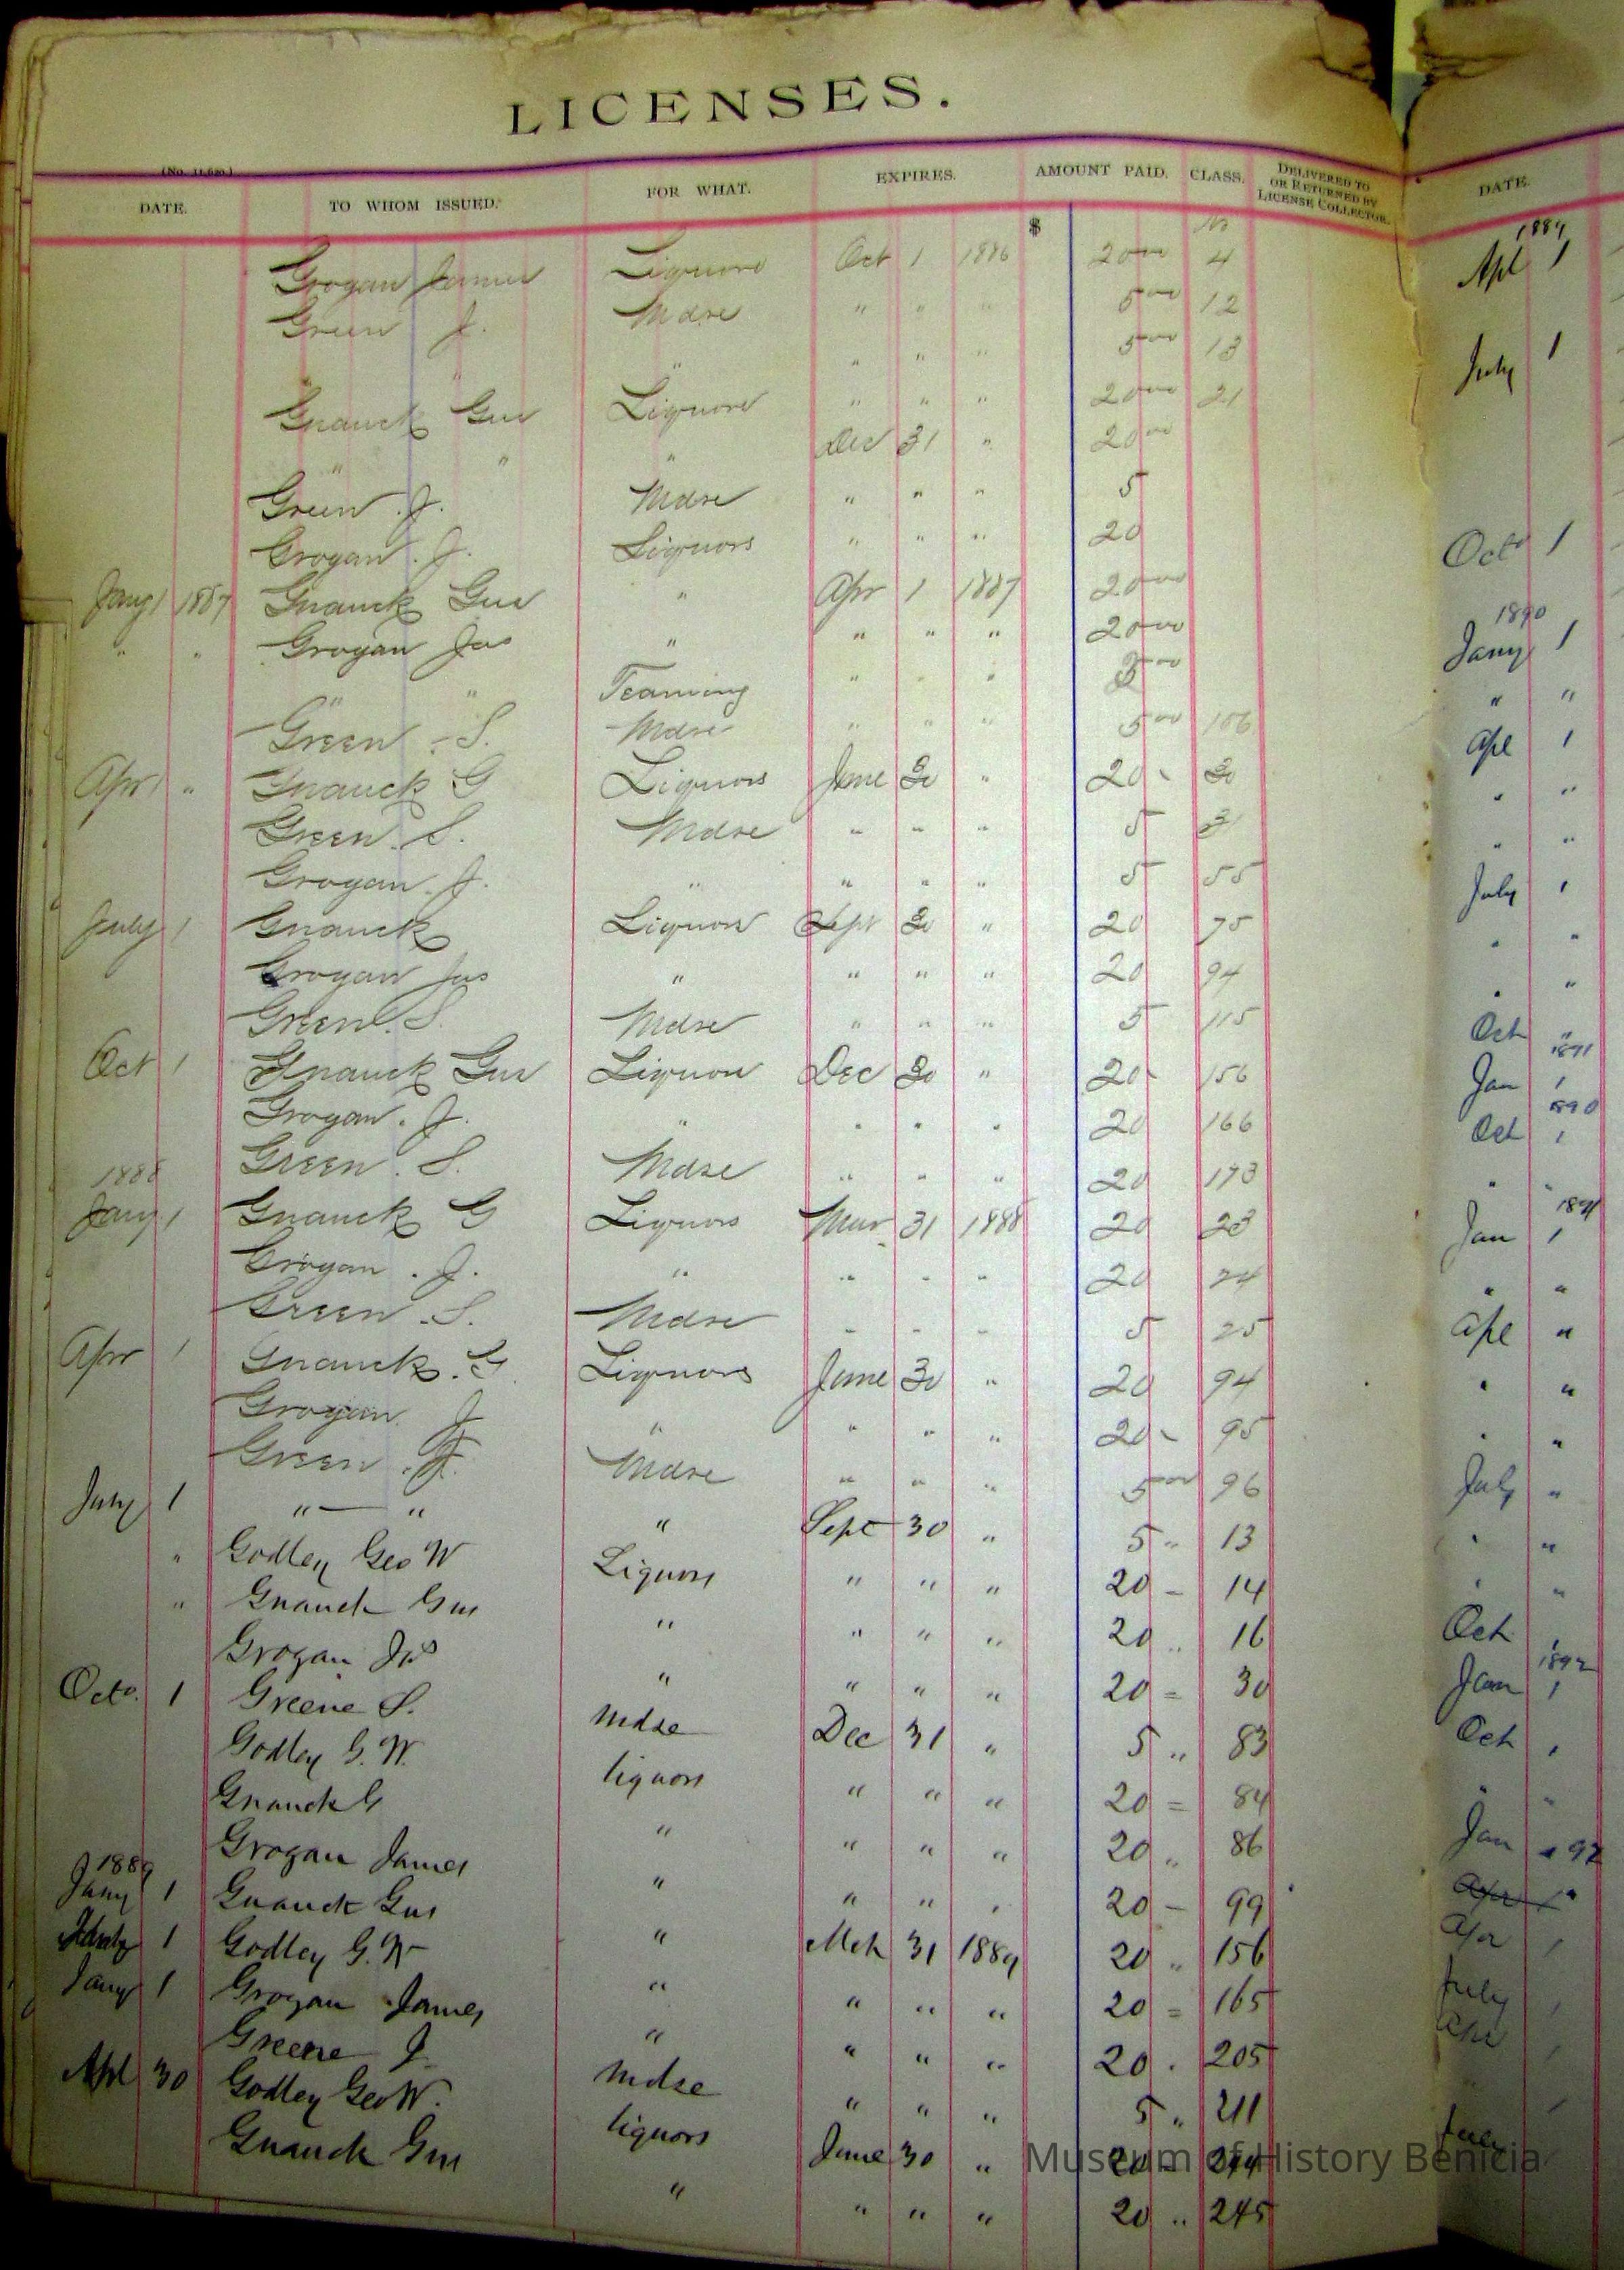 LICENSES.
(No. 11,620.)
DATE. TO WHOM ISSUED. FOR WHAT. EXPIRES. AMOUNT PAID. CLASS. DELIVERED TO OR RETURNED BY LICENSE COLLECTOR.
$ No
Grogan James Liquors Oct 1 1886 20 00 4
Green J. Mdse " " " 5 00 12
" " " " " 5 00 13
Gnauck Gus Liquors " " " 20 00 21
" " " Dec 31 " 20 00
Green . J. Mdse " " " 5
Grogan . J. Liquors " " " 20
Jany 1 1887 Gnauck Gus " Apr 1 1887 20 00
" " Grogan Jas " " " " 20 00
" " Teaming " " " 00
Green . S. Mdse " " " 5 00 106
Apr 1 " Gnauck G Liquors June 30 " 20 - 30
Green . S. Mdse " " " 5 31
Grogan . J. " " " " 5 55
July 1 Gnauck Liquors Sept 30 " 20 75
Grogan Jas " " " " 20 94
Green . S. Mdse " " " 5 115
Oct 1 Gnauck Gus Liquors Dec 30 " 20 - 156
Grogan . J. " " " " 20 166
Green . S. Mdse " " " 20 173
1888
Jany 1 Gnauck G Liquors Mar 31 1888 20 23
Grogan . J. " " " " 20 24
Green . S. Mdse " " " 5 25
Apr 1 Gnauck . G Liquors June 30 " 20 94
Grogan J " " " " 20 - 95
Green . J. Mdse " " " 5 00 96
July 1 " — " " Sept 30 " 5 " 13
" Godley Geo W Liquors " " " 20 - 14
" Gnauck Gus " " " " 20 " 16
Grogan Jas " " " " 20 = 30
Octo. 1 Greene S. Mdse Dec 31 " 5 " 83
Godley G. W. liquors " " " 20 = 84
Gnauck G " " " " 20 " 86
Grogan James " " " " 20 - 99
1889
Jany 1 Gnauck Gus " Mch 31 1889 20 " 156
1 Godley G. W " " " " 20 = 165
Jany 1 Grogan James " " " " 20 . 205
Greene J. Mdse " " " 5 " 211
Apl 30 Godley Geo W. liquors June 30 " 20 - 244
Gnauck Gus " " " " 20 " 245
DATE.
1889
Apl 1
July 1
Oct 1
1890
Jany 1
" "
Apl 1
" "
" "
July 1
" "
" "
Oct "
1891
Jan 1
1890
Oct 1
" "
1891
Jan 1
" "
Apl "
" "
" "
July "
" "
" "
Oct
1892
Jan 1
Oct 1
" "
Jan " 92
Apr 1
Apr 1
July 1
July
Museum of History Benicia